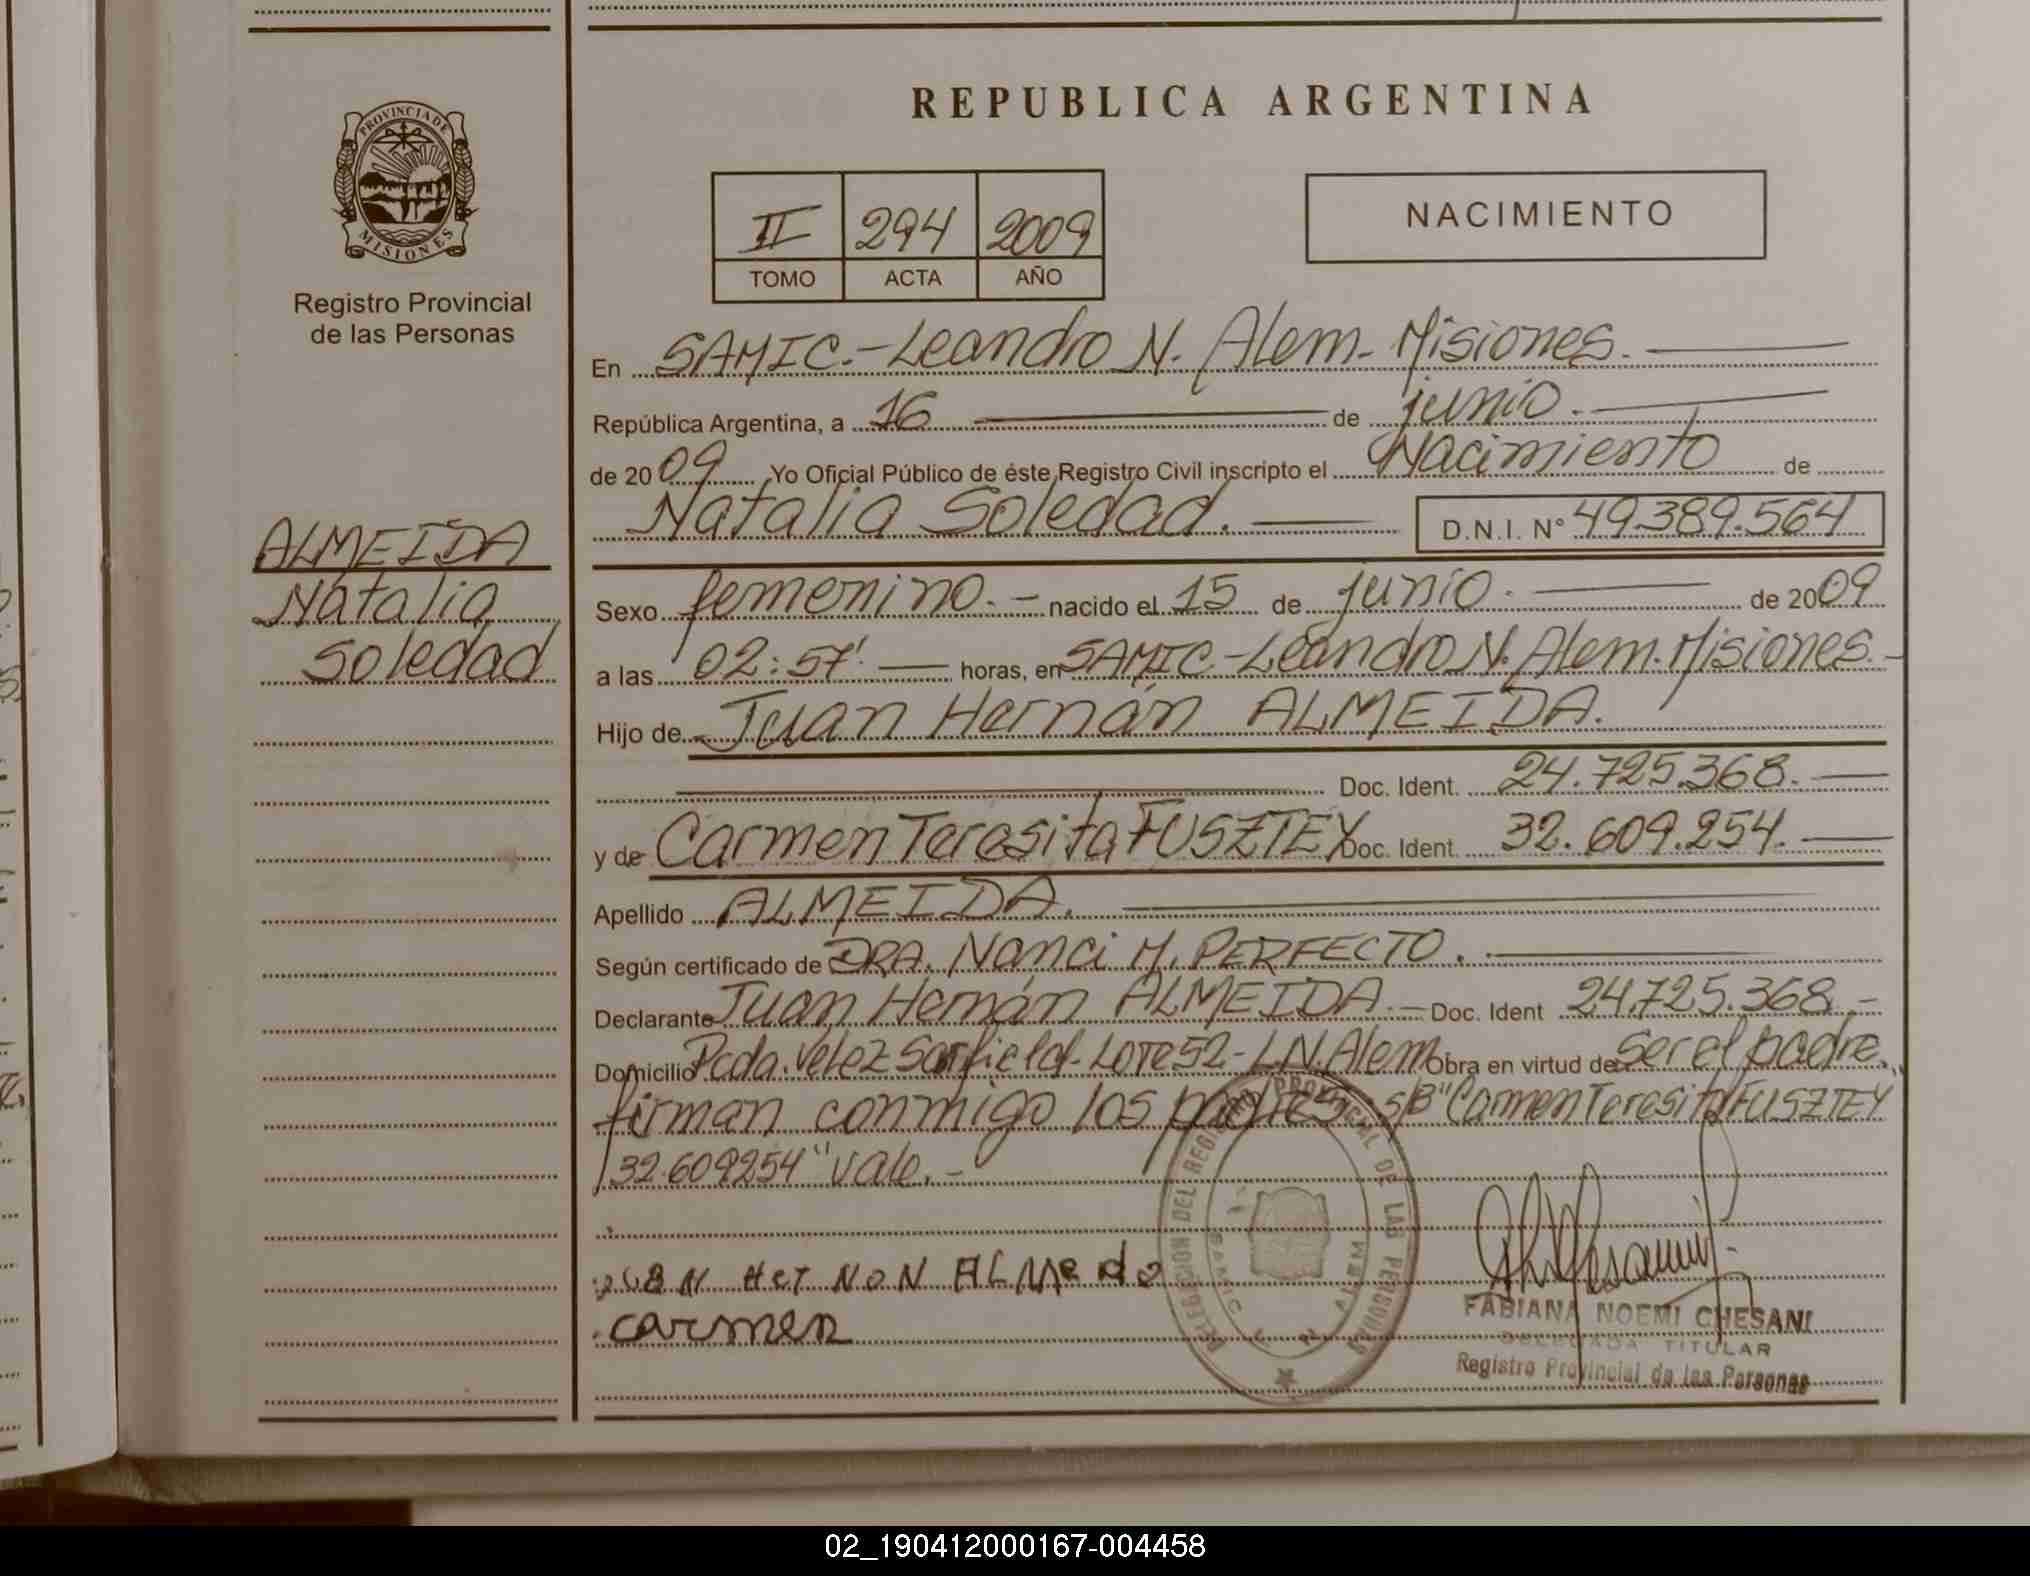 REPUBLICA ARGENTINA
PROVINCIA DE
MISIONES
Registro Provincial
de las Personas
II 294 2009
TOMO ACTA AÑO
NACIMIENTO
En SAMIC.-Leandro N. Alem-Misiones.
República Argentina, a 16 de junio.
de 2009 Yo Oficial Público de éste Registro Civil inscripto el Nacimiento de
Natalia Soledad. D.N.I. N° 49.389.564
ALMEIDA
Natalia
Soledad
Sexo femenino.- nacido el 15 de junio. de 2009
a las 02:57' horas, en SAMIC-Leandro N. Alem.Misiones.-
Hijo de Juan Hernán ALMEIDA.
Doc. Ident. 24.725.368.
y de Carmen Teresita FUSZTEY Doc. Ident. 32.609.254.
Apellido ALMEIDA.
Según certificado de DRA. Nanci M. PERFECTO.
Declarante Juan Hernán ALMEIDA.- Doc. Ident 24.725.368.-
Domicilio Pcda. Velez Sarfield-Lote 52-L.N.Alem. Obra en virtud de ser el padre.
firman conmigo los padres s/B "Carmen Teresita FUSZTEY
/32.609254" vale.-
Carmen
DELEGACION DEL REGISTRO PROVINCIAL DE LAS PERSONAS
SAMIC L N ALEM
FABIANA NOEMI CHESANI
DELEGADA TITULAR
Registro Provincial de las Personas
02_190412000167-004458